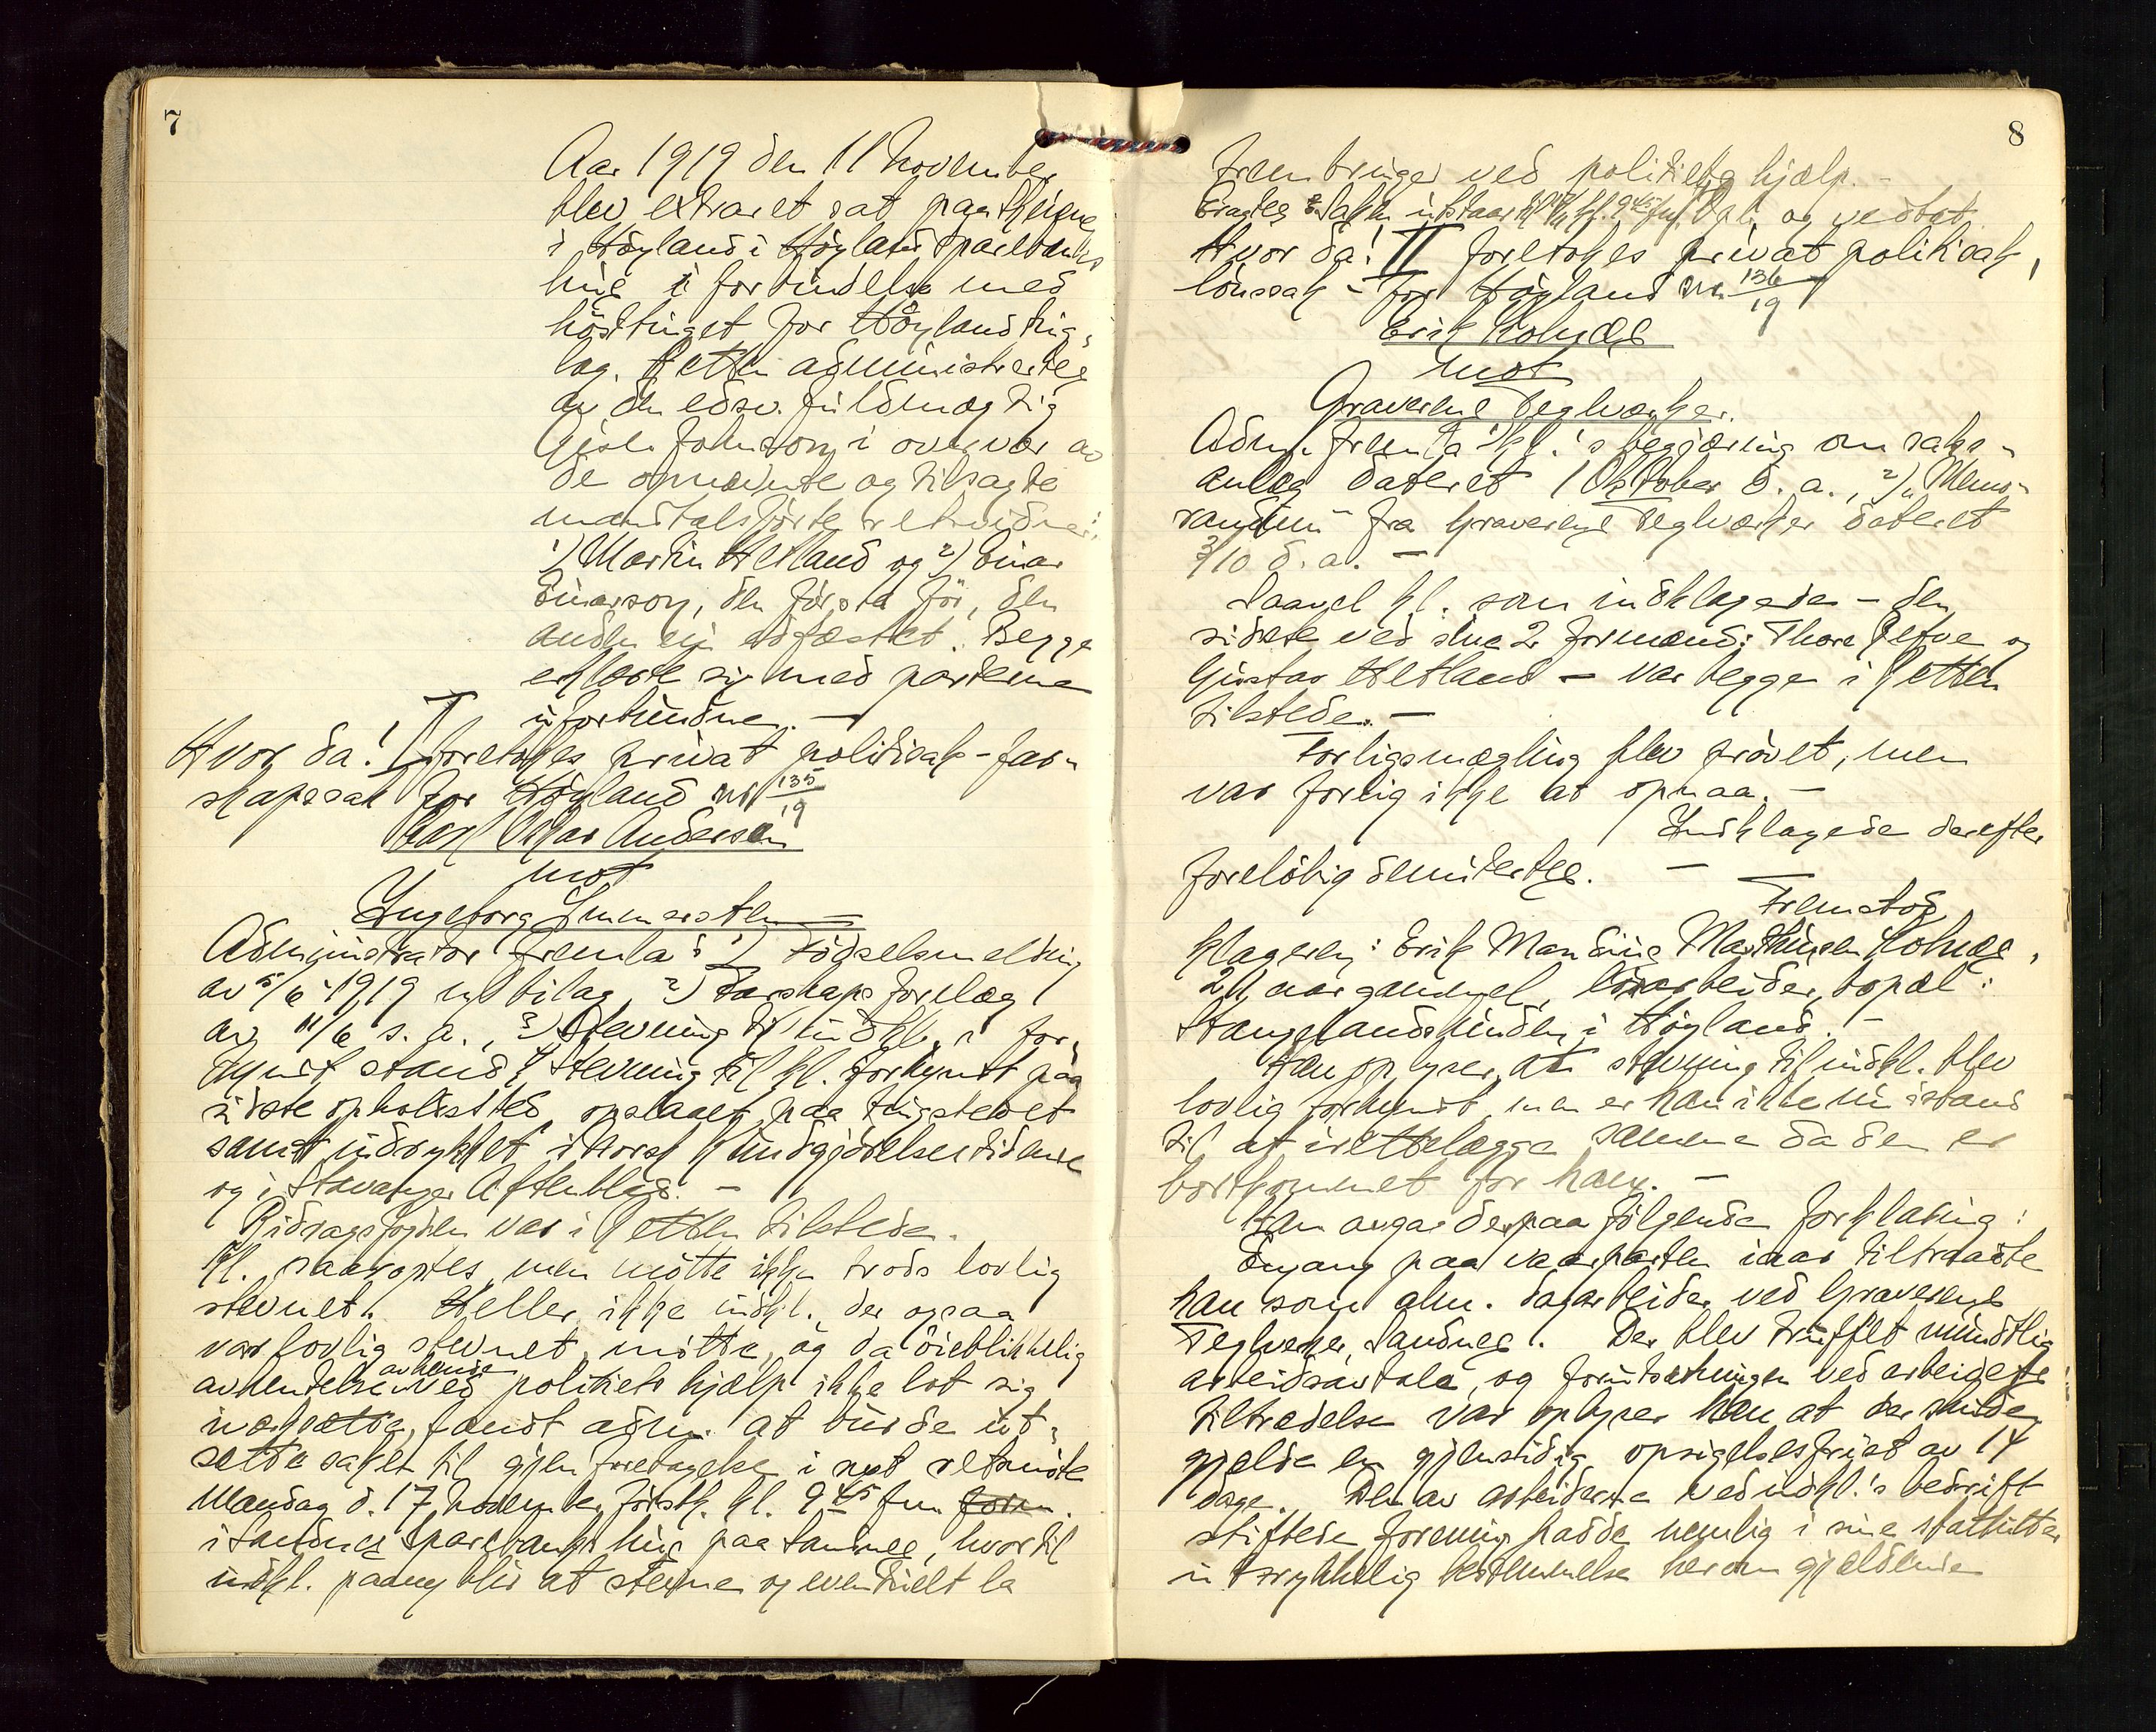 7
Aar 1919 den 11 November
blev extraret sat paa Thinghuset
i Høyland i Høyland Sparebanks
hus i forbindelse med
høsttinget for Høyland ting-
lag. Retten administrertes
av den edsv. fuldmægtig
Gisle Johnson i overvær av
de opnævnte og tilsagte
mandtalsførte retsvidner:
1) Martin Hetland og 2) Einar
Einarson, den første før, den
anden ei edfæstet. Begge
erklærte sig med parterne
uforbundne. —
Hvor da! I foretokes privat politisak - far-
skapssak for Høyland nr 135/19
Karl Oskar Andersen
mot
Ingeborg Immersten
Administrator fremla: 1) Fødselsmelding
av 5/6 1919 m/ bilag, 2) Farskapsforelæg
av 11/6 s. a., 3) Stevning til indkl. i for-
kyndt stand 4 Stevning til kl. forkyndt paa
sidste opholdssted, opslaaet paa tingstedet
samt indrykket i Norsk Kundgjørelsestidende
og i Stavanger Aftenblad. —
Bidragsfogden var i Retten tilstede.
Kl. paaroptes, men møtte ikke trods lovlig
stevnet. Heller ikke indkl., der ogsaa
var lovlig stevnet, møtte, og da øieblikkelig
avhentelse av hende ved politiets hjælp ikke lot sig
iverksætte, fandt adm. at burde ut-
sette saken til gjenforetagelse i nyt retsmøte
Mandag d. 17 november førstk. kl. 9 45 fm form.
i Sandnes Sparebanks hus paa Sandnes, hvortil
indkl. paany blir at stevne og eventuelt la
8
frembringes ved politiets hjælp. -
Eragtes: Saken utstaar til 17/11 kl. 9 45 fm. Opl. og vedtat.
Hvor da! II foretokes privat politisak,
lønssak - for Høyland nr 136/19
Erik Holmdes
mot
Graverens Teglverker.
Adm. fremla 1) kl.'s begjæring om saks-
anlæg dateret 1 Oktober d. a., 2) "Memo-
randum" fra Graverens Teglverker dateret
3/10 d. a. —
Saavel kl. som indklagede — den
sidste ved sine 2 formænd: Thore Refve og
Gustav Hetland — var begge i Retten
tilstede. —
Forligsmægling blev prøvet, men
var forlig ikke at opnaa. —
Indklagede derefter
foreløbig demitertes. —
Fremstod
klageren: Erik Mandius Marthinsen Holmdes,
21 aar gammel, løsarbeider, bopæl:
Stangelandslunden i Høyland. —
Han oplyser, at stevning til indkl. blev
lovlig forkyndt, men er han ikke nu istand
til at irettelægge samme da den er
bortkommet for ham. —
Han avgav derpaa følgende forklaring:
Engang paa vaarparten iaar tiltraadte
han som alm. dagarbeider ved Graverens
Teglverker, Sandnes. Der blev truffet mundtlig
arbeidsavtale, og forutsetningen ved arbeidets
tiltrædelse var oplyser han at der skulde
gjælde en gjensidig opsigelsesfrist av 14
dage. Den av arbeiderne ved indkl.'s bedrift
stiftede forening hadde nemlig i sine statutter
uttrykkelig bestemmelse herom gjældende